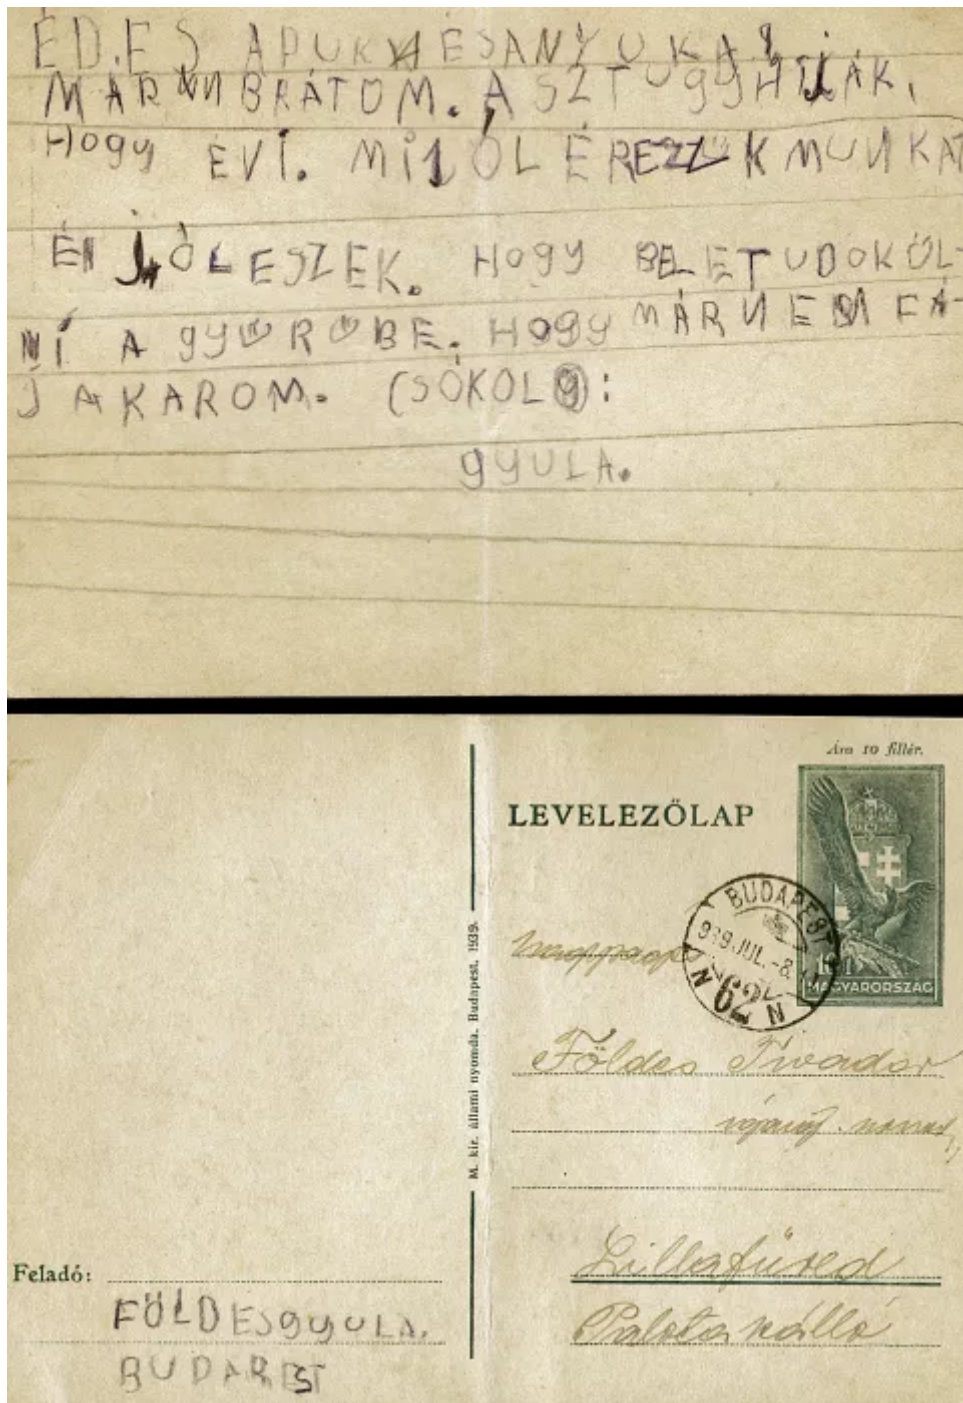 ÉDES APUKA ÉS ANYUKA!
MÁR VAN BRÁTOM. A SZT ÚGY HÍJÁK,
HOGY ÉVI. MI JÓL ÉREZZÜK MUNKAT
ÉN JÓ LESZEK. HOGY BELE TUDOK ÖL-
NI A GYŰRŰBE. HOGY MÁR NEM FÁ-
J A KAROM. (SÓKOL):
GYULA.
Ára 10 fillér.
LEVELEZŐLAP
MAGYARORSZÁG
BUDAPEST
939.JUL.-8.
N 62 N
M. kir. állami nyomda. Budapest, 1939.
Földes Tivadar
Lillafüred
Palota szálló
Feladó:
FÖLDES GYULA.
BUDAPEST